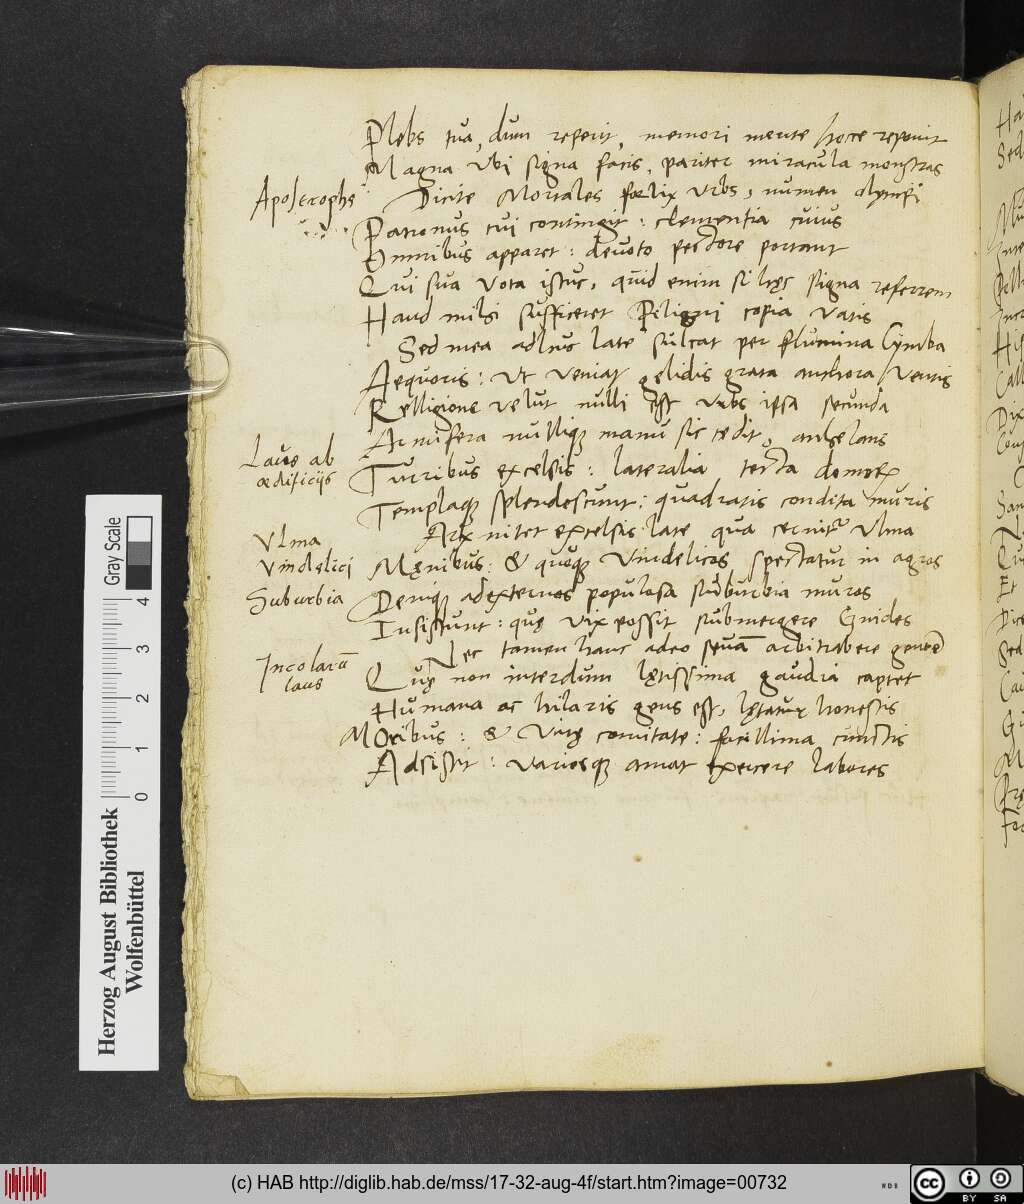 Plebs tua, dum reperit, memori mente hocce reponit
Magna ubi signa facis, pariter miracula monstras
Apostrophe
Dicite Mortales foelix urbs, numen olympi
Patronus cui contingit: clementia cuius
Omnibus apparet: devoto pectore portant
Qui sua vota istuc, quid enim si hęc signa referrem
Haud mihi sufficeret Peligni copia vatis
Sed mea adhuc late sulcat per flumina Cymba
Aequoris: ut veniat gelidis grata anchora ventis
Relligione velut nulli est urbs ipsa secunda
Armifera nullique manu sic cedit, anhelans
Laus ab
ædificijs
Turribus excelsis: lateralia tecta domorum
Templaque splendescunt: quadratis condita muris
Arx nitet excelsis late qua cernitur Ulma
Ulma
Vindelici
Męnibus: & quoque Vindelicos spectatur in agros
Suburbia
Denique ad externos populosa suburbia muros
Insistunt: quę vix possit submergere Gnides
Nec tamen hanc adeo sęvam arbitrabere gentem
Incolarum
laus
Quę non interdum lętissima gaudia captet
Humana ac hilaris gens est, lętatur honestis
Moribus: & vitę comitate: facillima cunctis
Adsistit: variosque amat exercere labores
Herzog August Bibliothek
Wolfenbüttel
Gray Scale
0 1 2 3 4
(c) HAB http://diglib.hab.de/mss/17-32-aug-4f/start.htm?image=00732
cc BY SA